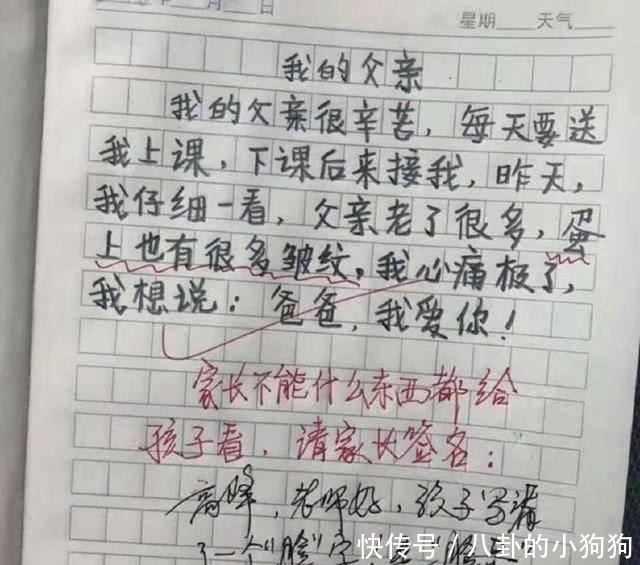 月 日
星期 天气
我的父亲
我的父亲很辛苦，每天要送
我上课，下课后来接我，昨天，
我仔细一看，父亲老了很多，蛋
上也有很多皱纹，我心痛极了，
我想说：爸爸，我爱你！
家长不能什么东西都给
孩子看，请家长签名：
高峰，老师好，孩子写错
了一个"脸"字
快传号/八卦的小狗狗